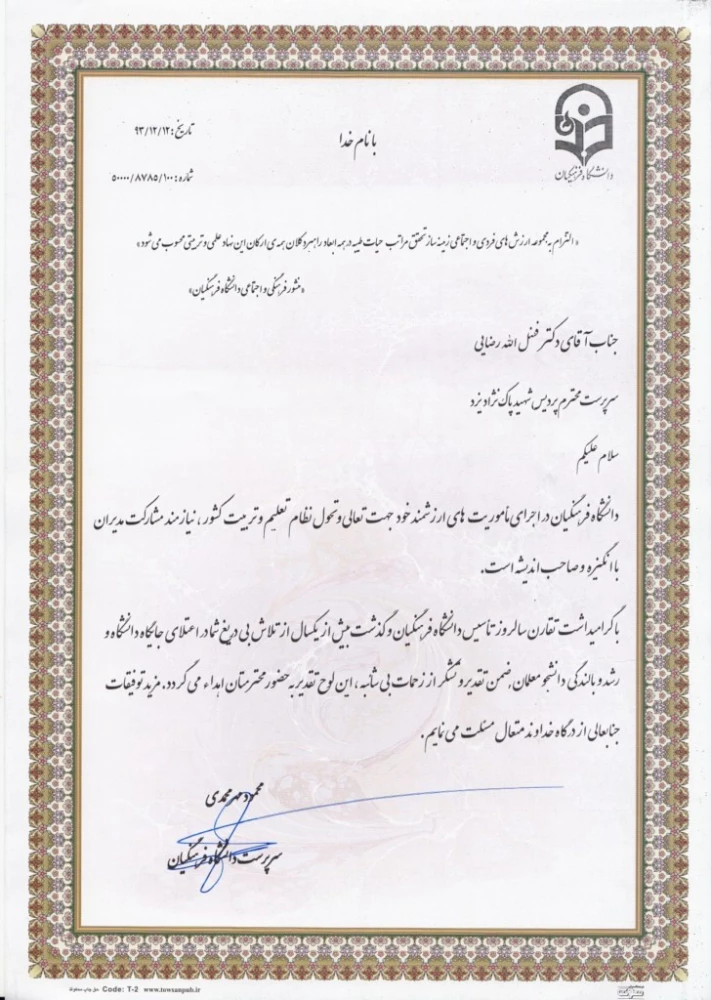 دانشگاه فرهنگیان
با نام خدا
تاریخ: ۹۳/۱۲/۱۲
شماره: ۵۰۰۰۰/۸۷۸۵/۱۰۰
« التزام به مجموعه ارزش های فردی و اجتماعی زمینه ساز تحقق مراتب حیات طیبه در همه ابعاد راهبرد کلان همه ی ارکان این نهاد علمی و تربیتی محسوب می شود»
«منشور فرهنگی و اجتماعی دانشگاه فرهنگیان»
جناب آقای دکتر فضل الله رضایی
سرپرست محترم پردیس شهید پاک نژاد یزد
سلام علیکم
دانشگاه فرهنگیان در اجرای ماموریت های ارزشمند خود جهت تعالی و تحول نظام تعلیم و تربیت کشور ، نیازمند مشارکت مدیران
با انگیزه و صاحب اندیشه است.
با گرامیداشت تقارن سالروز تاسیس دانشگاه فرهنگیان و گذشت بیش از یکسال از تلاش بی دریغ شما در اعتلای جایگاه دانشگاه و
رشد و بالندگی دانشجو معلمان، ضمن تقدیر و تشکر از زحمات بی شائبه ، این لوح تقدیر به حضور محترمتان اهداء می گردد. مزید توفیقات
جنابعالی از درگاه خداوند متعال مسئلت می نمایم.
محمود مهرمحمدی
سرپرست دانشگاه فرهنگیان
Code: T-2 www.towsanpub.ir